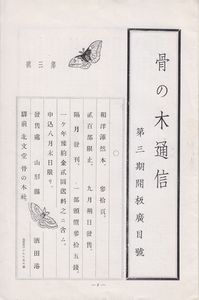 骨の木通信
第三期開板廣目號
第三號
和洋薄然本　參拾頁。
貳百部限止。　九月朔日發售。
隔月發刊。一部頒價參拾五錢。
一ケ年豫約金貳圓送料之ニ含ム。
申込八月末日限リ。
發售處　山形縣　酒田港
𨻶前　北文堂　骨の木社。
— 1 —